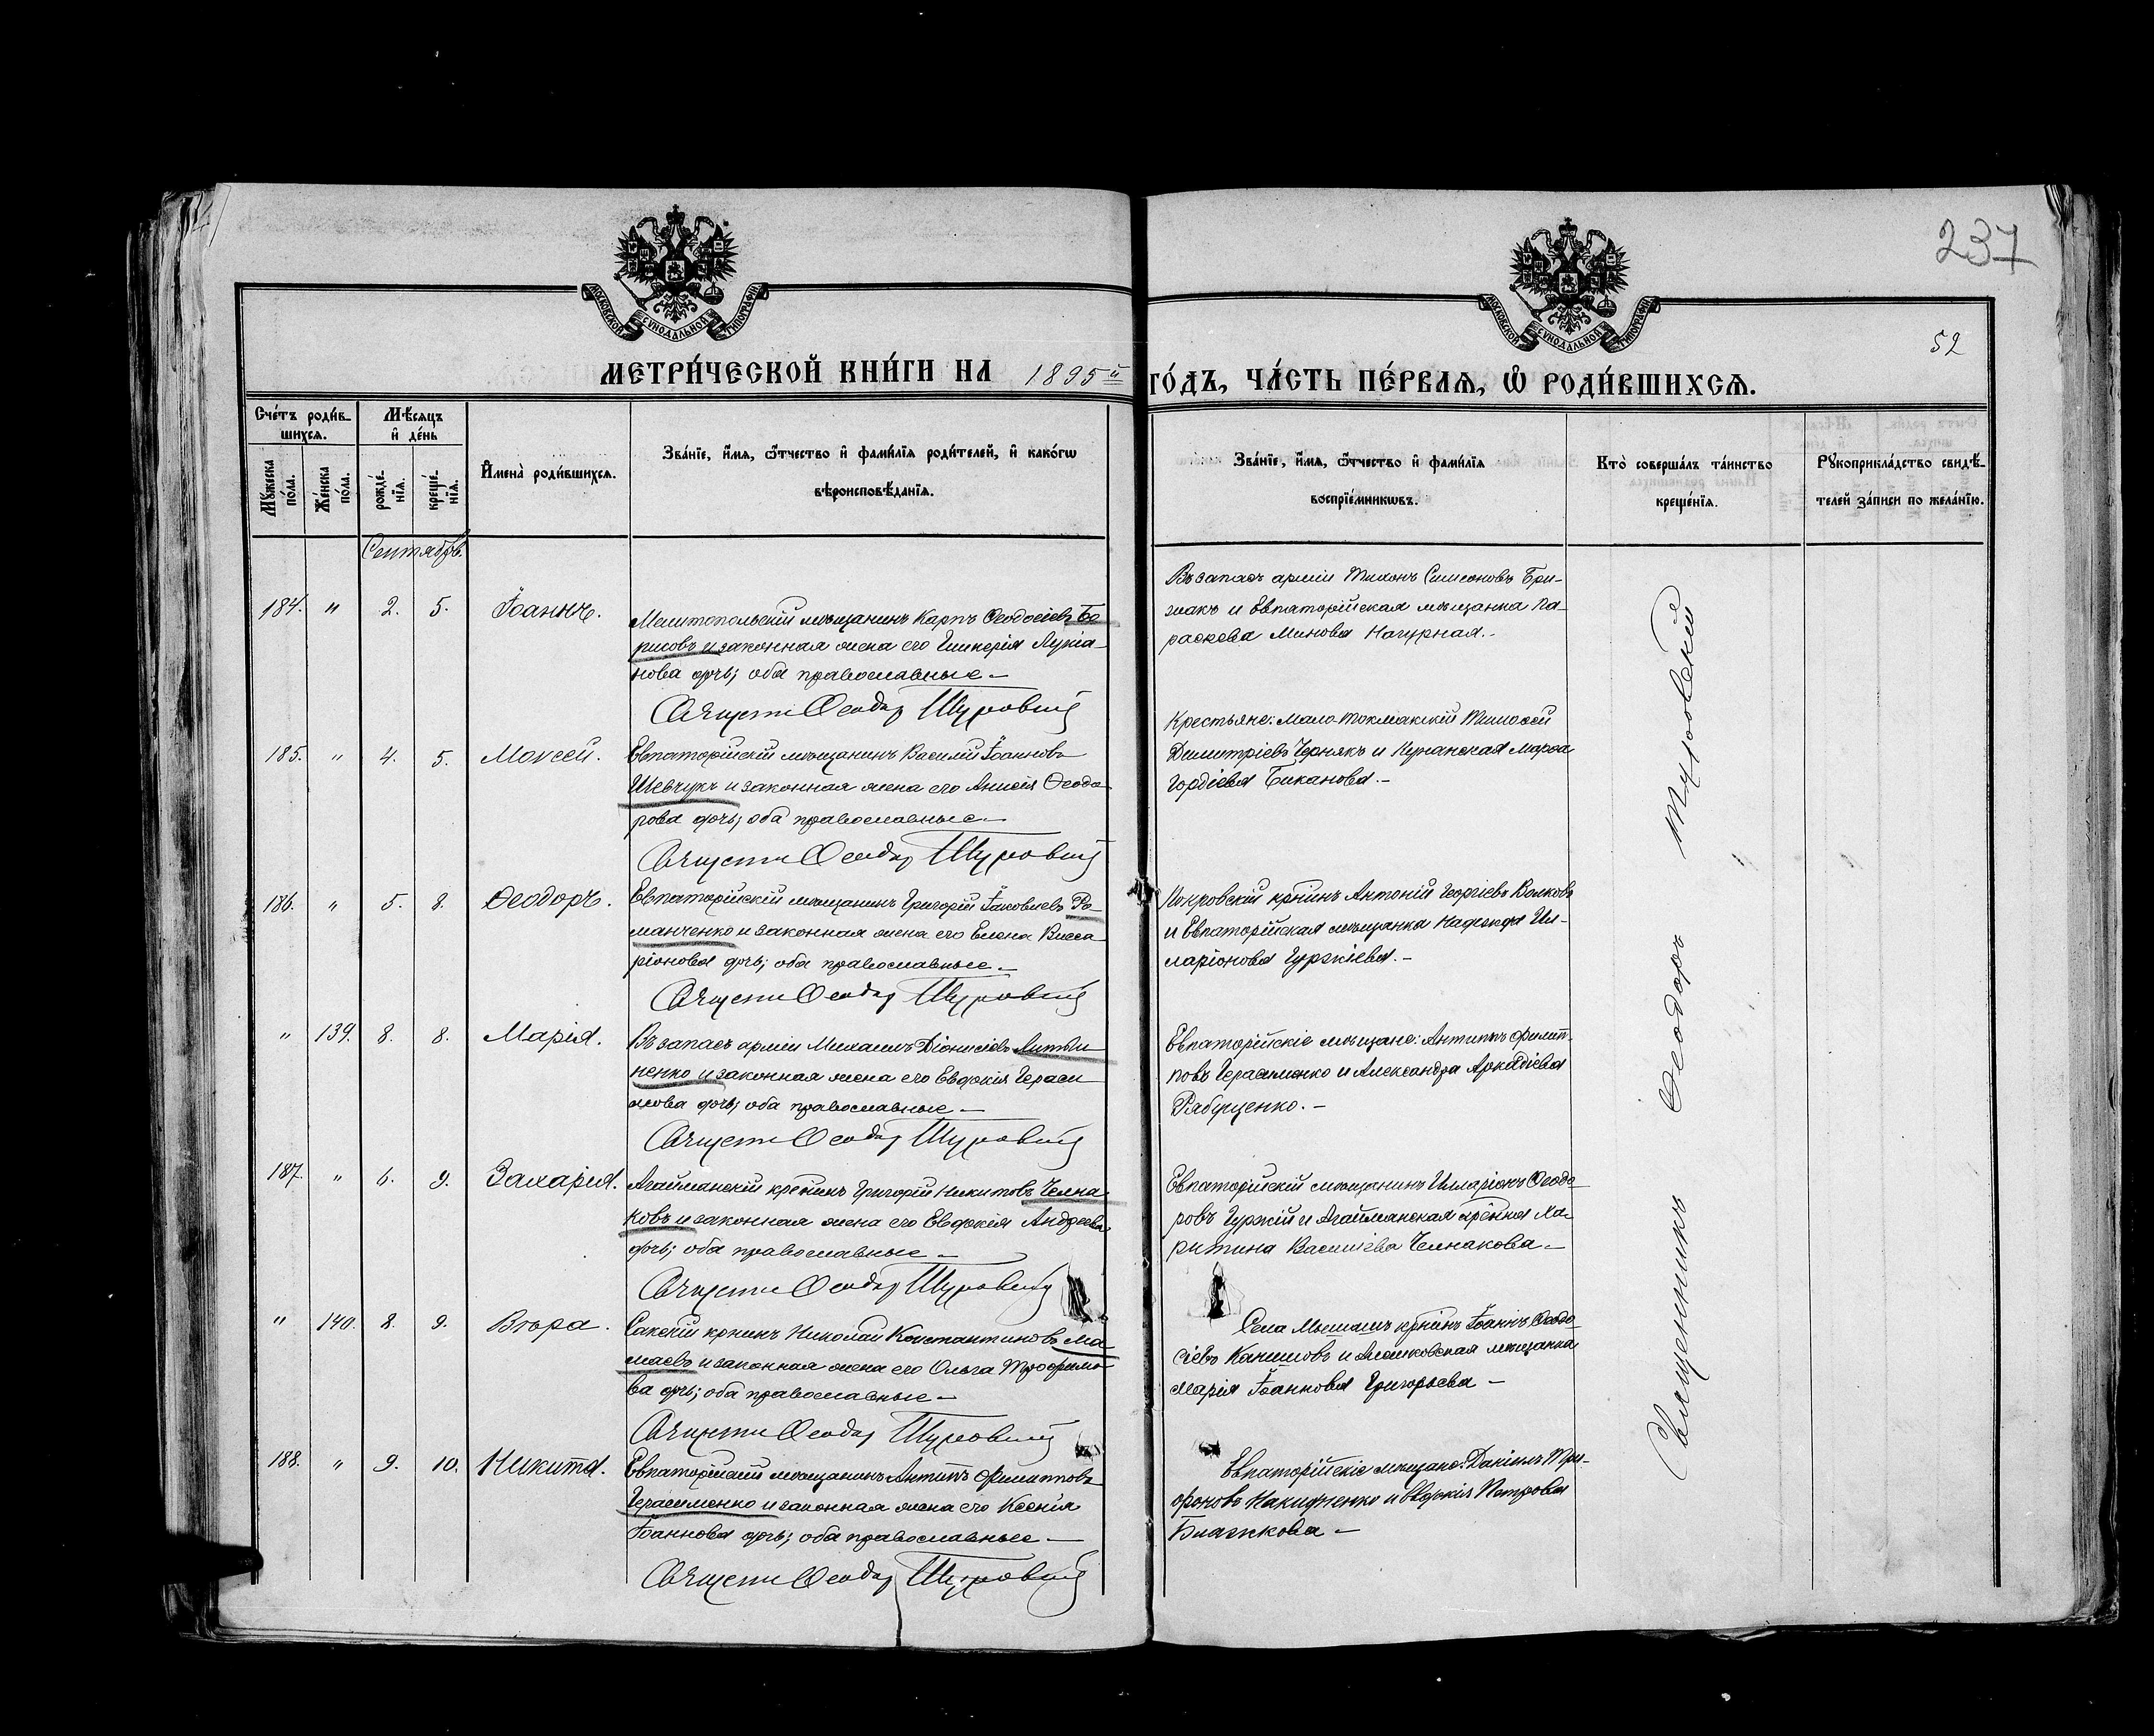 237
52
МОСКОВСКОЙ СѴНОДАЛЬНОЙ ТИПОГРАФІИ
МОСКОВСКОЙ СѴНОДАЛЬНОЙ ТИПОГРАФІИ
МЕТРИ́ЧЕСКОЙ КНИ́ГИ НА 1895й ГО́ДЪ, ЧА́СТЬ ПЕ́РВАѦ, Ѽ РОДИ́ВШИХСѦ.
Сче́тъ роди́в-
шихсѧ.
Мѣ́сѧцъ
и҆ де́нь
Мꙋ́жеска по́ла.
Же́нска по́ла.
рожде́-нїѧ.
креще́-нїѧ.
И҆мена̀ роди́вшихсѧ.
Зва́нїе, и҆́мѧ, ѻ҆́тчество и҆ фами́лїѧ роди́телей, и҆ како́гѡ
вѣроисповѣ́данїѧ.
Зва́нїе, и҆́мѧ, ѻ҆́тчество и҆ фами́лїѧ
воспрїе́мникѡвъ.
Кто̀ соверша́лъ та́инство
креще́нїѧ.
Рꙋкоприкла́дство свидѣ́-
телей за́писи по жела́нїю.
Сентябрь.
184. " 2. 5. Іоаннъ.
Мелитопольскій мѣщанинъ Карпъ Ѳеодосіевъ Бо-
рисовъ и законная жена его Гликерія Лукіа-
нова дочь; оба православные.—
Священ. Ѳеодор Туровскій
Въ запасѣ арміи Тихонъ Симеоновъ Бри-
жакъ и Евпаторійская мѣщанка Па-
раскева Минова Нагурная.-
185. " 4. 5. Моѵсей.
Евпаторійскій мѣщанинъ Василій Іоанновъ
Шевчукъ и законная жена его Анисія Ѳеодо-
рова дочь; оба православные.—
Священ. Ѳеодор Туровскій
Крестьяне: Мало-Токмакскій Тимоѳей
Димитріевъ Чернякъ и Марѳа
Гордіева Биканова.-
186. " 5. 8. Ѳеодоръ.
Евпаторійскій мѣщанинъ Григорій Іаковлевъ Ро-
манченко и законная жена его Елена Висса-
ріонова дочь; оба православные.—
Священ. Ѳеодор Туровскій
Покровскій кр-нинъ Антоній Георгіевъ Волковъ
и Евпаторійская мѣщанка Надежда Ил-
ларіонова Гуржіева.-
" 139. 8. 8. Марія.
Въ запасѣ арміи Михаилъ Діонисіевъ Литви-
ненко и законная жена его Евдокія Гераси-
мова дочь; оба православные—
Священ. Ѳеодор Туровскій
Евпаторійскіе мѣщане: Антипъ Филип-
повъ Герасименко и Александра Аркадіева
Рябущенко.-
187. " 6. 9. Захарія.
Агайманскій кр-нинъ Григорій Никитовъ Челна-
ковъ и законная жена его Евдокія Андреева
дочь; оба православные—
Священ. Ѳеодор Туровскій
Евпаторійскій мѣщанинъ Илларіонъ Ѳеодо-
ровъ Гуржій и Агайманская кр-нка Ха-
ритина Васильева Челнакова—
" 140. 8. 9. Вѣра.
Сакскій кр-нинъ Николай Константиновъ Ма-
маевъ и законная жена его Ольга Трофимо-
ва дочь; оба православные—
Священ. Ѳеодор Туровскій
Села кр-нинъ Іоаннъ Ѳеодо-
сіевъ и Алешковская мѣщанка
Марія Іоаннова Григорьева—
188. " 9. 10. Никита.
Евпаторійскій мѣщанинъ Антипъ Филипповъ
Герасименко и законная жена его Ксенія
Іоаннова дочь; оба православные—
Священ. Ѳеодор Туровскій
Евпаторійскіе мѣщане: Даніилъ Три-
фоновъ и Евдокія Петрова
Блажкова—
Священникъ Ѳеодоръ Туровскій